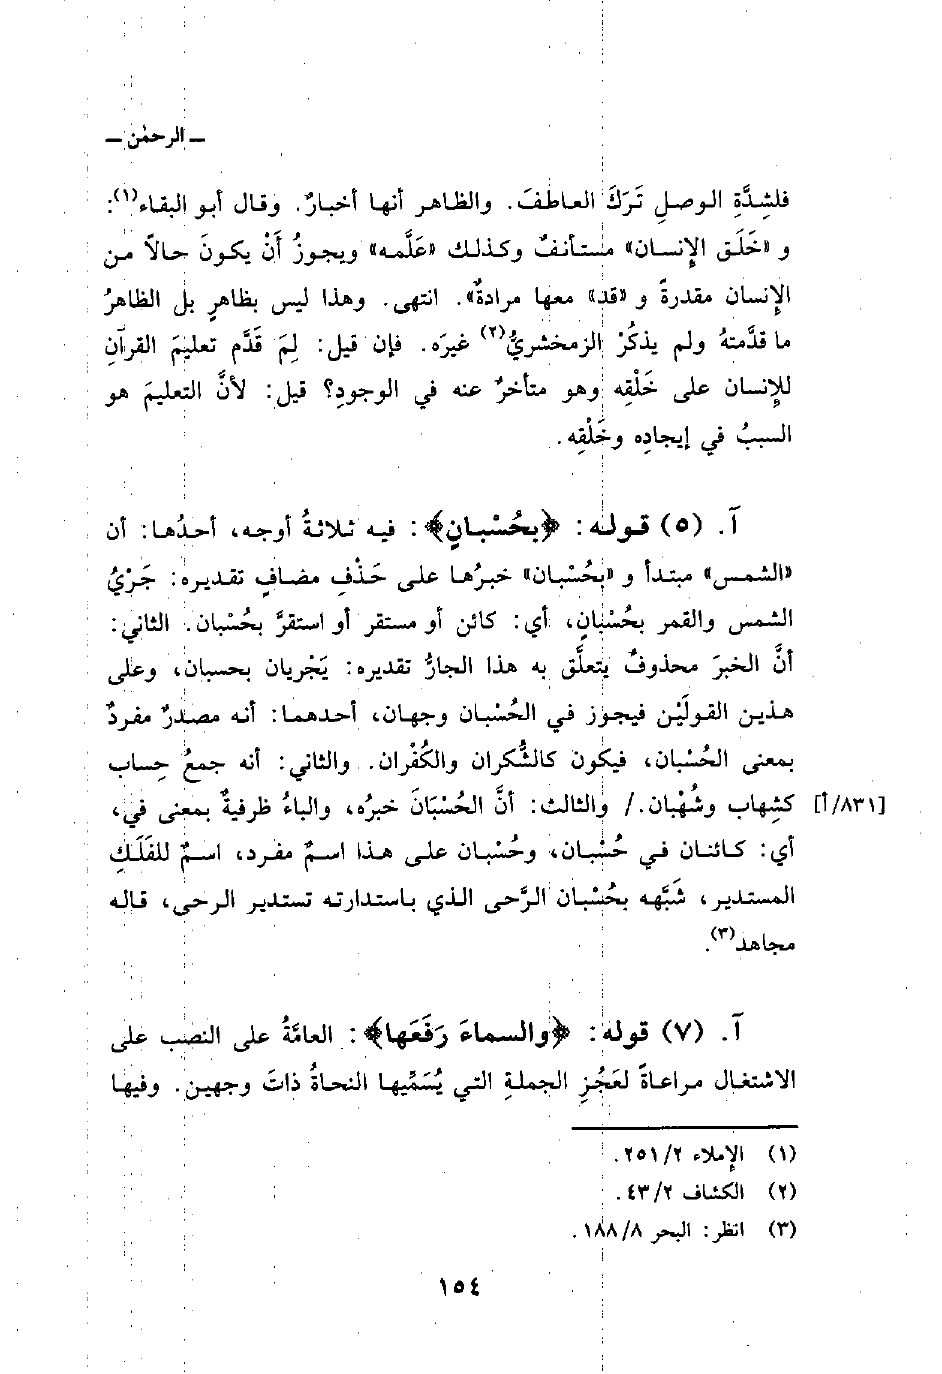 ــ الرحمٰن ــ
فلشِدَّةِ الوصلِ تَرَكَ العاطفَ. والظاهر أنها أخبارٌ. وقال أبو البقاء(١):
و «خَلَق الإِنسان» مستأنفٌ وكذلك «عَلَّمه» ويجوزُ أَنْ يكونَ حالاً من
الإِنسان مقدرةً و «قد» معها مرادةٌ». انتهى. وهذا ليس بظاهرٍ بل الظاهرُ
ما قدَّمتهُ ولم يذكُرْ الزمخشريُّ(٢) غيرَه. فإن قيل: لِمَ قَدَّم تعليمَ القرآنِ
للإِنسان على خَلْقِه وهو متأخرٌ عنه في الوجودِ؟ قيل: لأنَّ التعليمَ هو
السببُ في إيجادِه وخَلْقِه.
آ. (٥) قوله: ﴿بحُسْبانٍ﴾: فيه ثلاثةُ أوجه، أحدُها: أن
«الشمس» مبتدأ و «بحُسْبان» خبرُها على حَذْفِ مضافٍ تقديره: جَرْيُ
الشمس والقمر بحُسْبانٍ، أي: كائن أو مستقر أو استقرَّ بحُسْبان. الثاني:
أنَّ الخبرَ محذوفٌ يتعلَّق به هذا الجارُّ تقديره: يَجْريان بحسبان، وعلى
هذين القولَيْن فيجوز في الحُسْبان وجهان، أحدهما: أنه مصدرٌ مفردٌ
بمعنى الحُسْبان، فيكون كالشُّكران والكُفْران. والثاني: أنه جمعُ حِساب
[٨٣١/أ] كشِهاب وشُهْبان./ والثالث: أنَّ الحُسْبَانَ خبرُه، والباءُ ظرفيةٌ بمعنى في،
أي: كائنان في حُسْبان، وحُسْبان على هذا اسمٌ مفرد، اسمٌ للفَلَكِ
المستدير، شَبَّهه بحُسْبان الرَّحى الذي باستدارته تستدير الرحى، قاله
مجاهد(٣).
آ. (٧) قوله: ﴿والسماءَ رَفَعَها﴾: العامَّةُ على النصب على
الاشتغال مراعاةً لعَجُزِ الجملةِ التي يُسَمِّيها النحاةُ ذاتَ وجهين. وفيها
(١) الإِملاء ٢/٢٥١.
(٢) الكشاف ٢/٤٣.
(٣) انظر: البحر ٨/١٨٨.
١٥٤